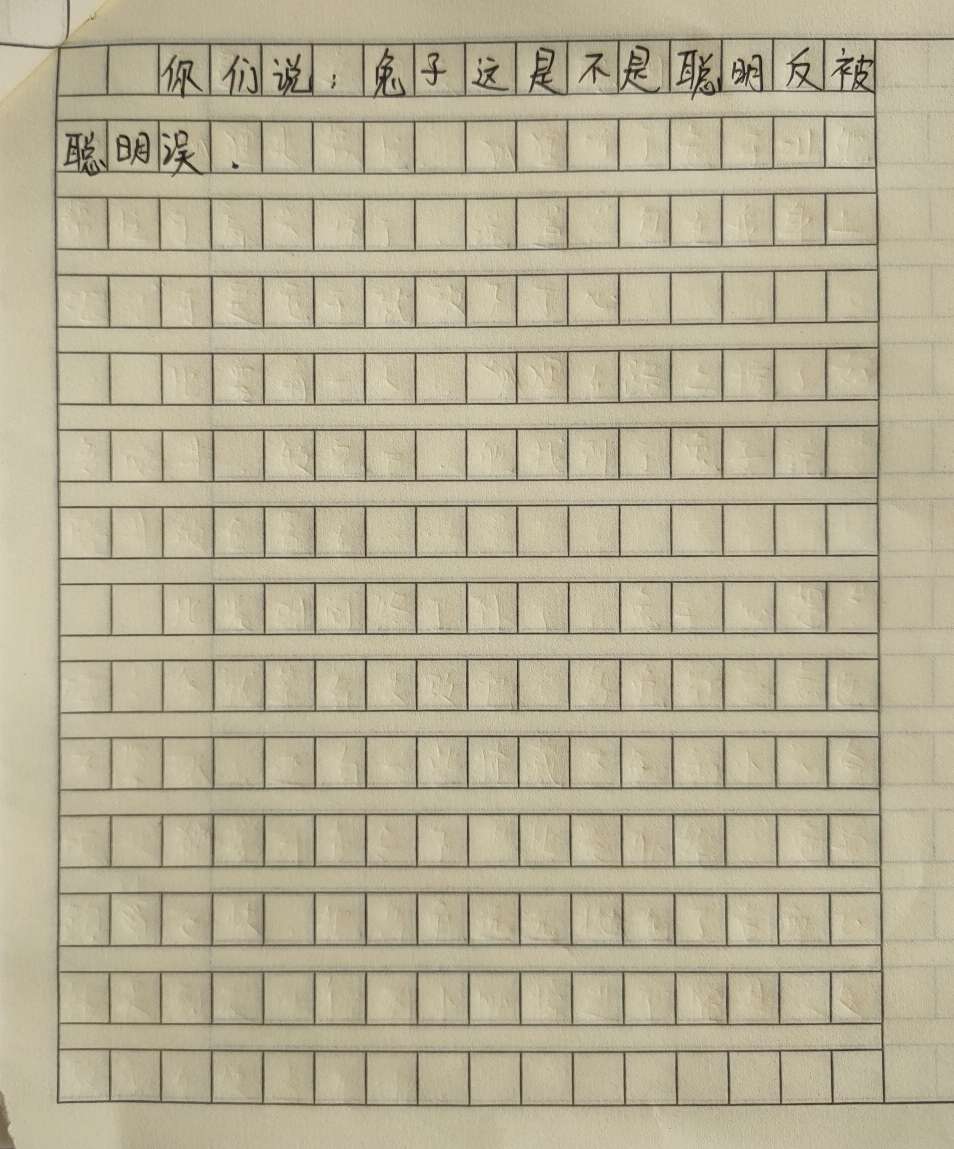 你们说：兔子这是不是聪明反被
聪明误.